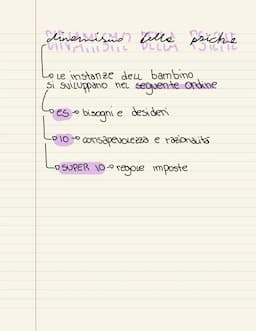 dinamismo della psiche
DINAMISMO DELLA PSICHE
le instanze dell bambino
si sviluppano nel seguente ordine
ES → bisogni e desideri
IO → consapevolezza e razionalità
SUPER IO → regole imposte